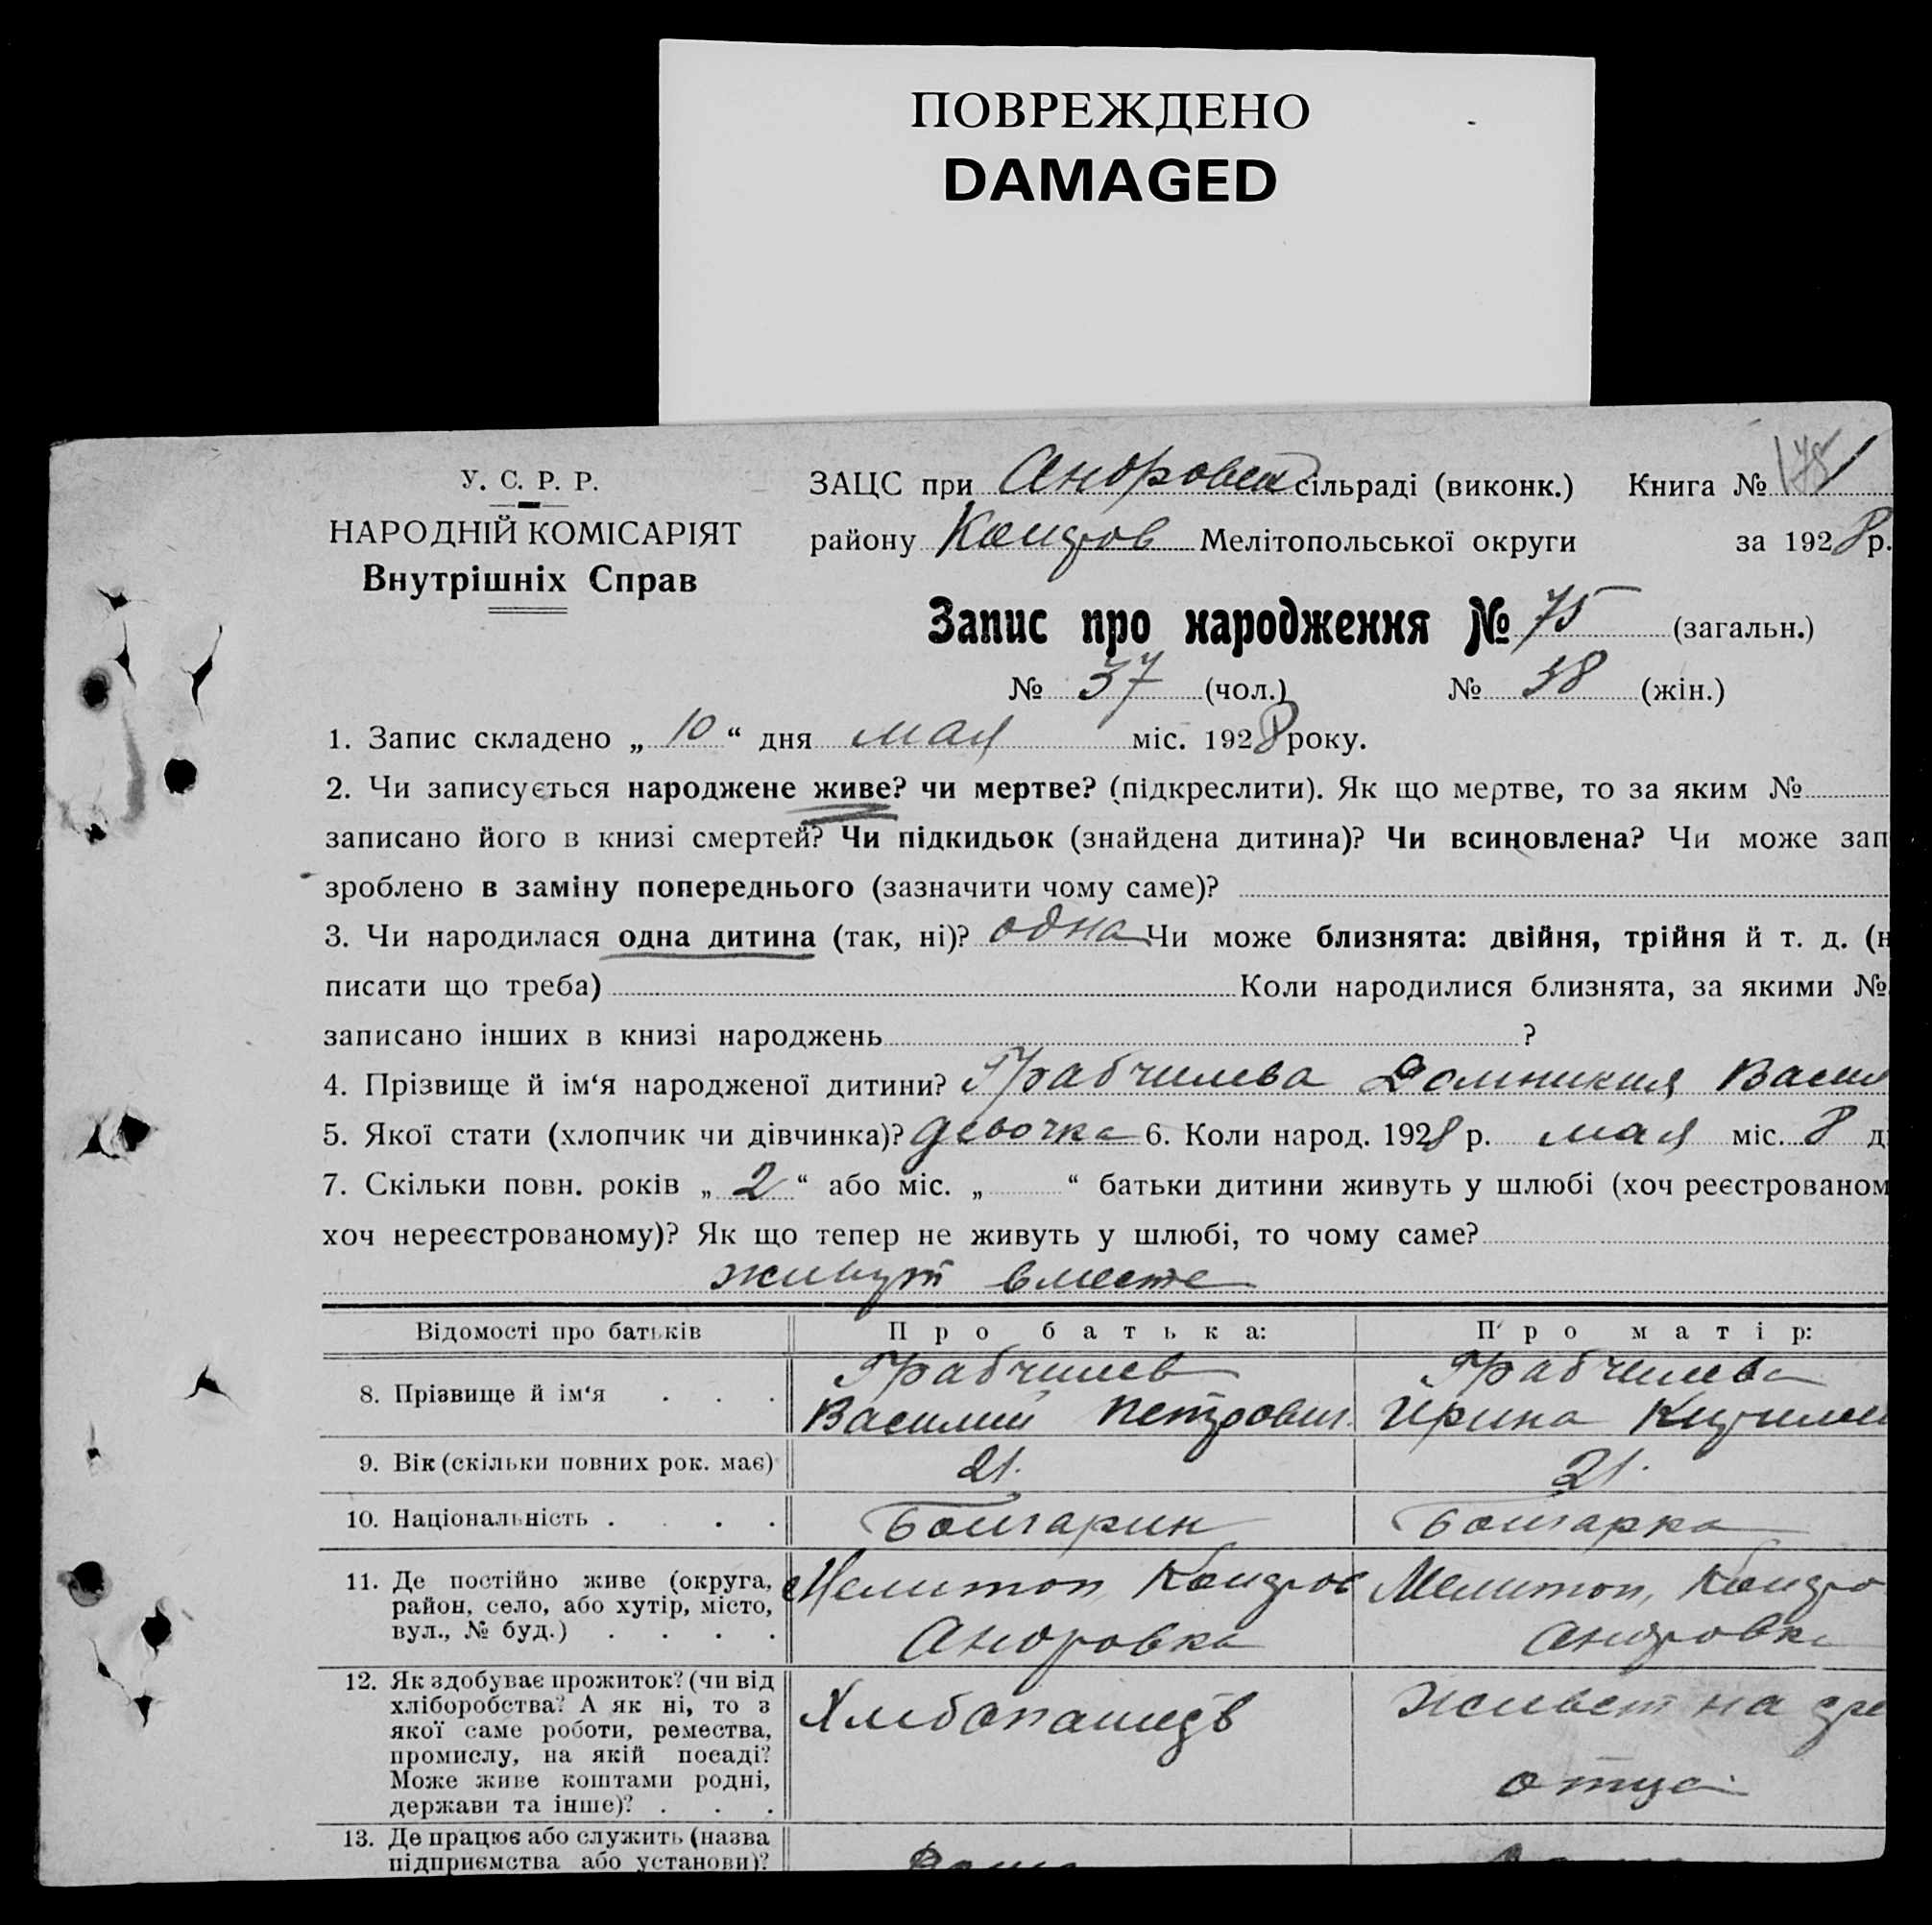 ПОВРЕЖДЕНО
DAMAGED
У. С. Р. Р.
НАРОДНІЙ КОМІСАРІЯТ
Внутрішніх Справ
ЗАЦС при Андровск сільраді (виконк.) Книга № 1
району Коларов Мелітопольської округи за 1928 р.
Запис про народження № 75 (загальн.)
№ 37 (чол.) № 38 (жін.)
1. Запис складено „ 10 “ дня мая міс. 1928 року.
2. Чи записується народжене живе? чи мертве? (підкреслити). Як що мертве, то за яким №
записано його в книзі смертей? Чи підкидьок (знайдена дитина)? Чи всиновлена? Чи може зап
зроблено в заміну попереднього (зазначити чому саме)?
3. Чи народилася одна дитина (так, ні)? одна Чи може близнята: двійня, трійня й т. д. (н
писати що треба) Коли народилися близнята, за якими №
записано інших в книзі народжень ?
4. Прізвище й ім‘я народженої дитини? Грабчилева Домникия Васил
5. Якої стати (хлопчик чи дівчинка)? девочка 6. Коли народ. 1928 р. мая міс. 8 д
7. Скільки повн. років „ 2 “ або міс. „ “ батьки дитини живуть у шлюбі (хоч реєстрованом
хоч нереєстрованому)? Як що тепер не живуть у шлюбі, то чому саме?
живут вместе
Відомості про батьків Про батька: Про матір:
8. Прізвище й ім‘я . . . Грабчилев Василий Петрович Грабчилева Ирина
9. Вік (скільки повних рок. має) 21. 21.
10. Національність . . . . Болгарин Болгарка
11. Де постійно живе (округа, район, село, або хутір, місто, вул., № буд.) . . . . Мелитоп Коларов Андровка Мелитоп, Коларо Андровка
12. Як здобуває прожиток? (чи від хліборобства? А як ні, то з якої саме роботи, ремества, промислу, на якій посаді? Може живе коштами родні, держави та інше)? . . . Хлибопашедв Живет на сре отца
13. Де працює або служить (назва підприємства або установи)?